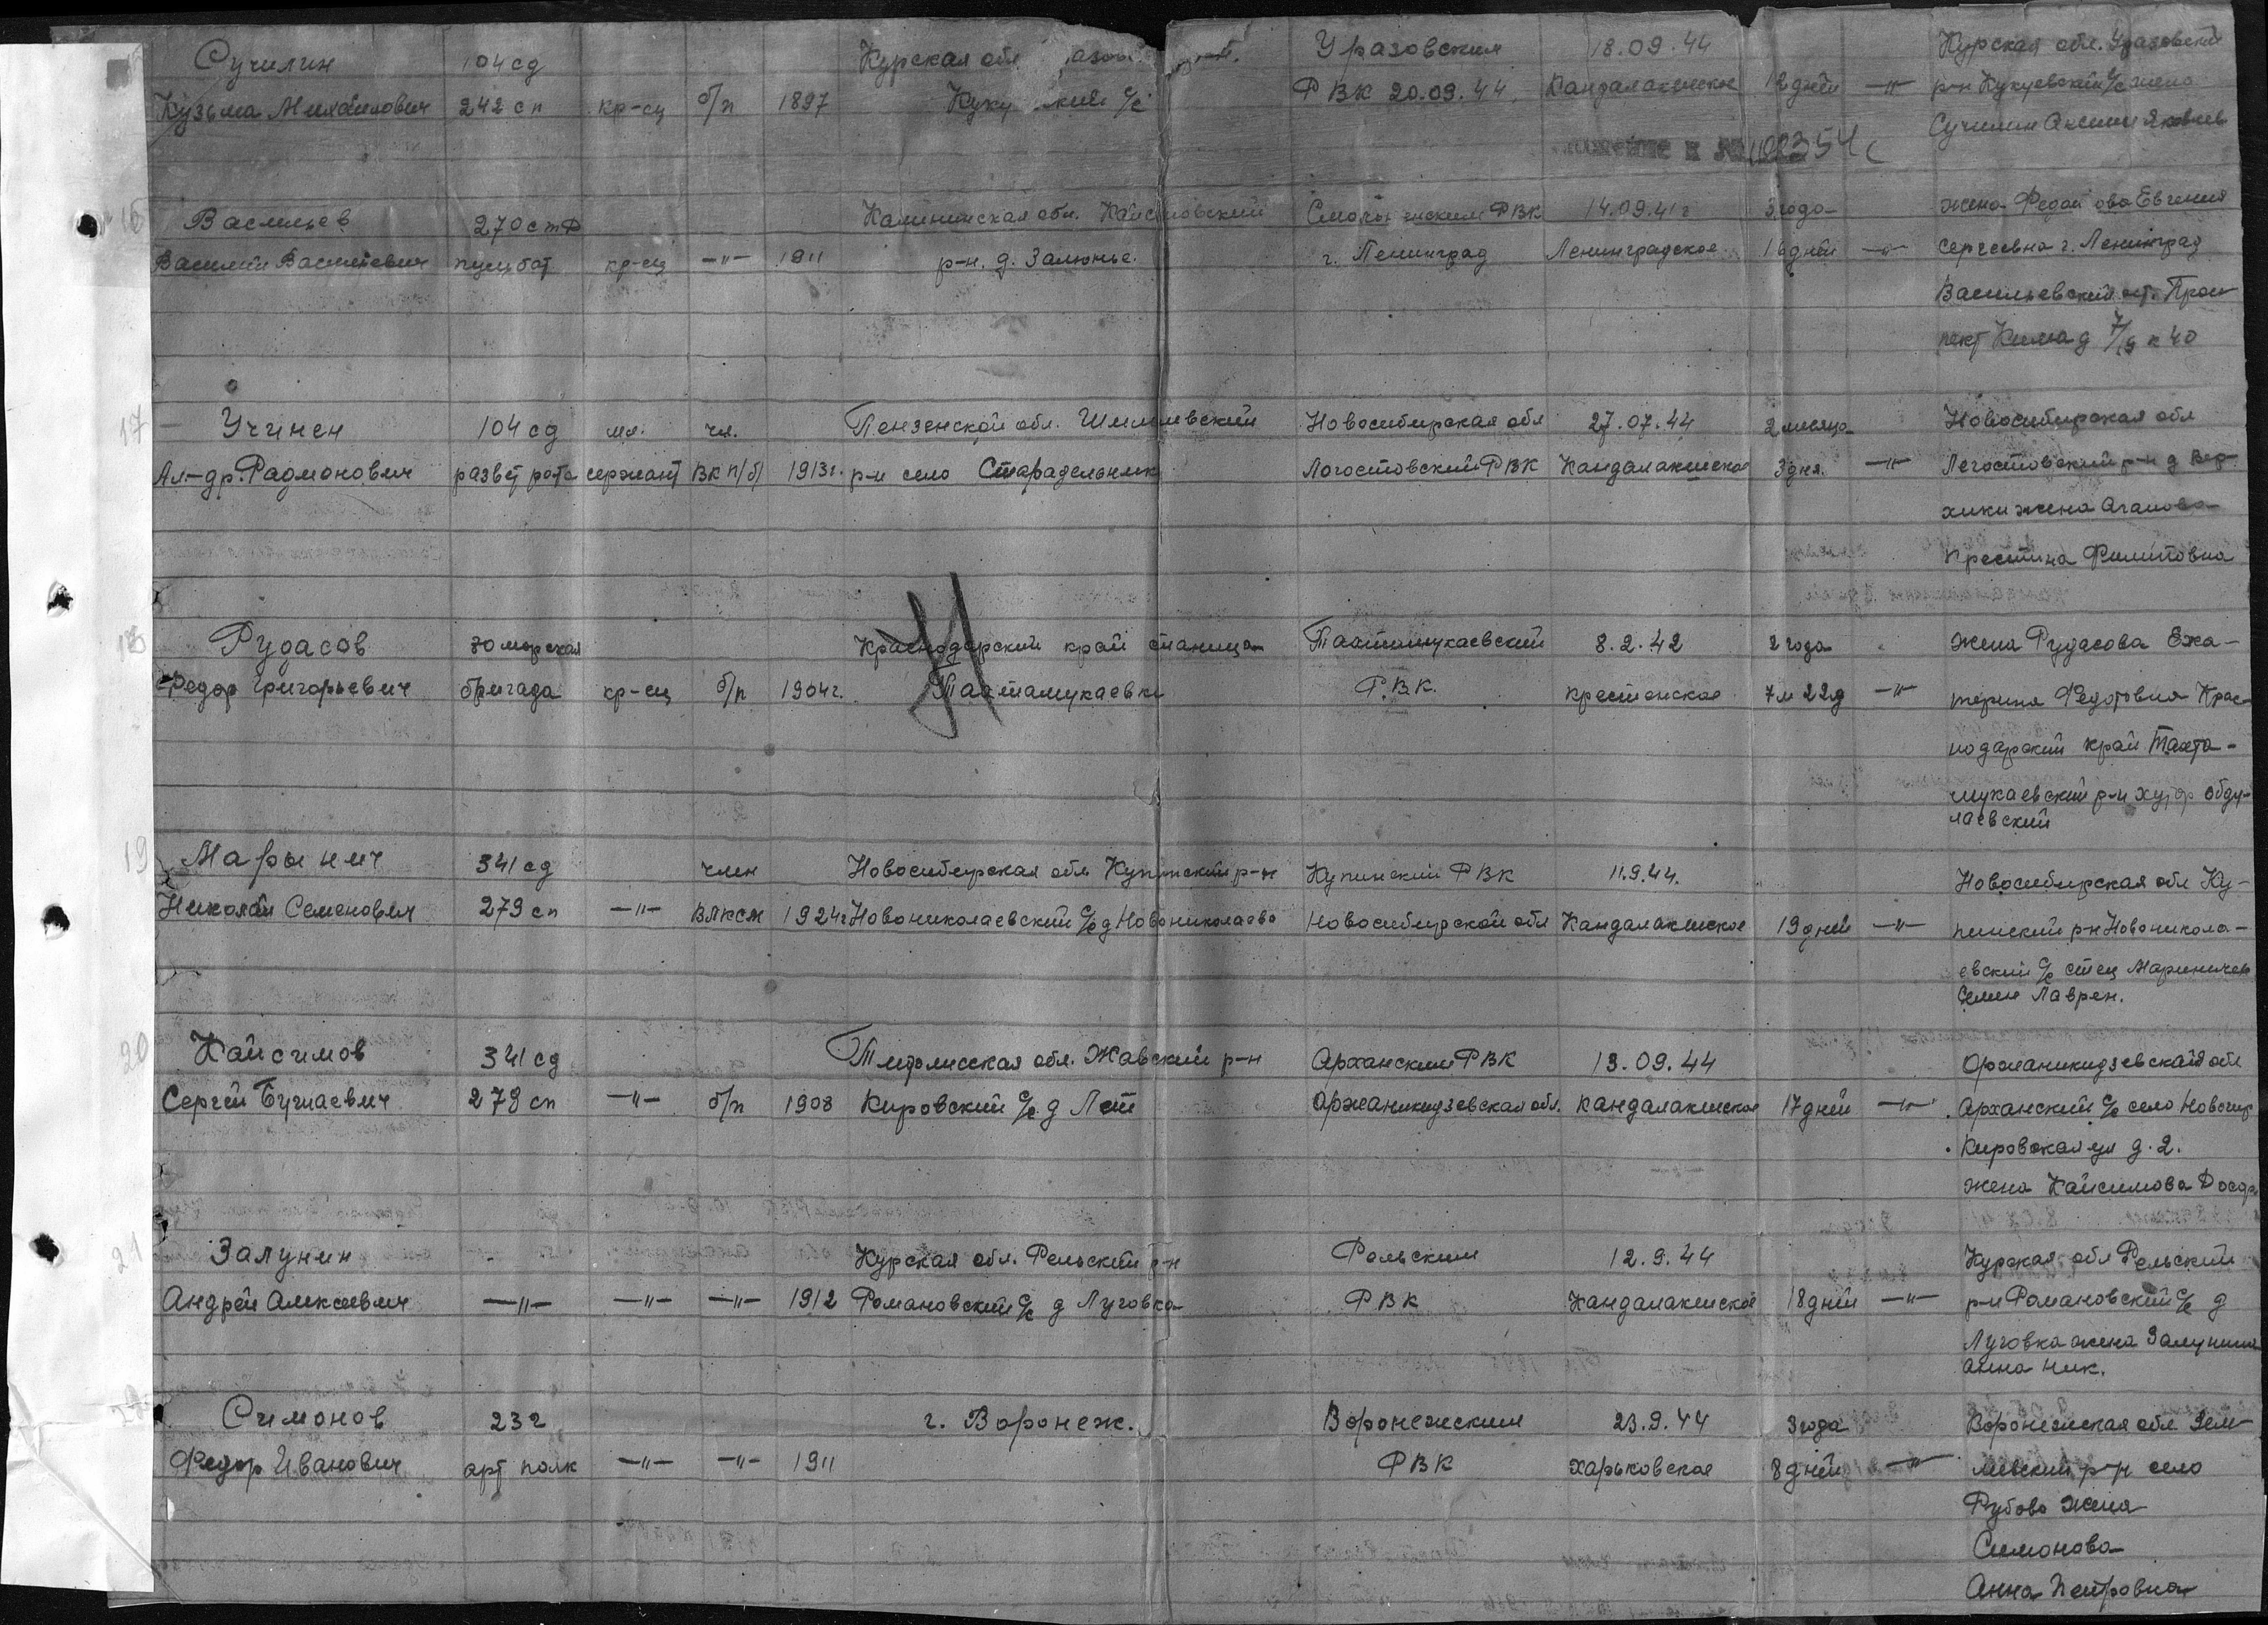 Сучилин 104 сд Курская обл. Уразовским 18.09.44 Курская обл. Уразовский
Кузьма Михайлович 242 сп кр-ец б/п 1897 с/с РВК 20.09.44. Кандалакшское 12 дней —"— р-н Кукуевский с/с жена
Сучилин Яковлев
к № 102354с
16 Васильев 270 стр Калининская обл. РВК 14.09.41 г 3 года жена Евгения
Василий Васильевич пульбат кр-ец —"— 1911 р-н. д. Залюнье. г. Ленинград Ленинградское 16 дней —"— Сергеевна г. Ленинград
Васильевский ост. Прос
пект Кима д 7/9 к 40
17 Учинен 104 сд мл. чл. Пензенской обл. Новосибирская обл 27.07.44 2 месяца Новосибирская обл
Ал-др. Радионович развед рота сержант ВКП/б/ 1913 г. р-н село Старадельники Логостовский РВК Кандалакшское 3 дня. —"— Легостовский р-н д Вер-
хики жена Агапова
Крестина Филиповна
18 Рудасов 70 морская Краснодарский край станица Тахтамукаевский 8.2.42 2 года жена Рудасова Ека-
Федор Григорьевич бригада кр-ец б/п 1904 г. Тахтамукаевка Р.В.К. крестенское 7 м 22 д —"— терина Федотовна Крас-
нодарский край Тахта-
мукаевский р-н хутор Обду-
лаевский
19 Марынич 341 сд член Новосибирская обл Купинский р-н Купинский РВК 11.9.44. Новосибирская обл Ку-
Николай Семенович 279 сп —"— ВЛКСМ 1924 г Новониколаевский с/с д Новониколаево Новосибирской обл Кандалакшское 19 дней —"— пинский р-н Новоникола-
евский с/с отец Мариничен
Семен Лаврен.
20 Кайсимов 341 сд Тифлисская обл. Жавский р-н Арханским РВК 13.09.44 Оржаникидзевская обл
Сергей 279 сп —"— б/п 1908 Кировский с/с д Оржаникидзевская обл. Кандалакшское 17 дней —"— Арханский с/с село
Кировская ул д. 2.
жена Кайсимова
21 Залунин Курская обл. Рельский р-н Рольским 12.9.44 Курская обл Рельский
Андрей Алексеевич —"— —"— —"— 1912 Романовский с/с д Луговка РВК Кандалакшское 18 дней —"— р-н Романовский с/с д
Луговка жена Залунина
Анна Ник.
22 Симонов 232 г. Воронеж. Воронежским 23.9.44 3 года Воронежская обл Зем-
Федор Иванович арт полк —"— —"— 1911 РВК харьковское 8 дней —"— левский р-н село
Рубово жена
Симонова
Анна Петровна